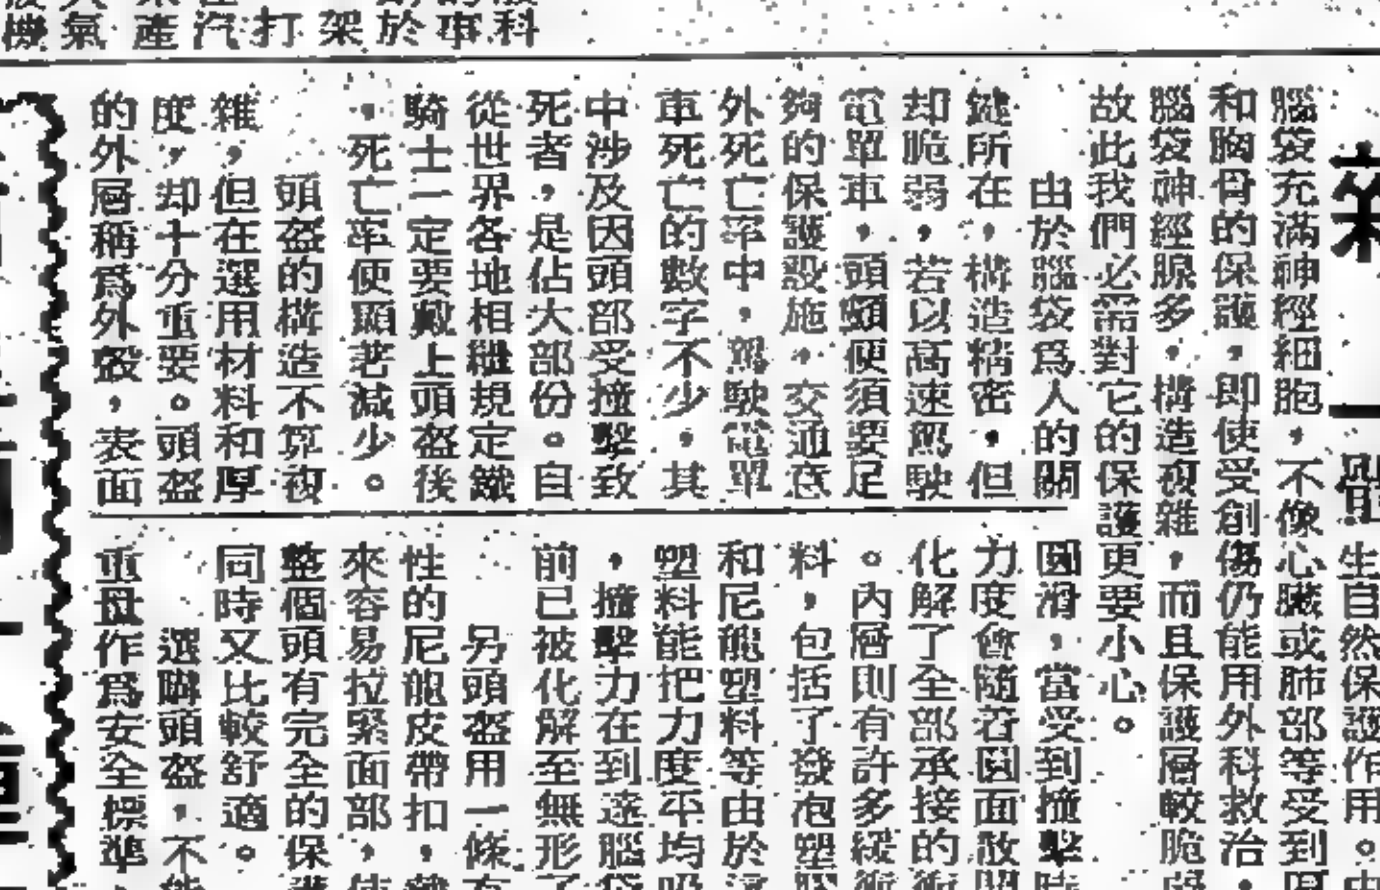 科
事
於
架
打
汽
產
氣
機
生自然保護作用。
腦袋充滿神經細胞，不像心臟或肺部等受到
和胸骨的保護，即使受創傷仍能用外科救治，
腦袋神經腺多，構造複雜，而且保護層較脆
故此我們必需對它的保護更要小心。
由於腦袋爲人的關
鍵所在，構造精密，但
却脆弱，若以高速駕駛
電單車，頭顱便須要足
夠的保護設施。交通意
外死亡率中，駕駛電單
車死亡的數字不少，其
中涉及因頭部受撞擊致
死者，是佔大部份。自
從世界各地相繼規定鐵
騎士一定要戴上頭盔後
，死亡率便顯著減少。
頭盔的構造不算複
雜，但在選用材料和厚
度，却十分重要。頭盔
的外層稱爲外殼，表面
圓滑，當受到撞擊時
力度會隨着圓面散開
化解了全部承接的衝
。內層則有許多緩衝
料，包括了發泡塑膠
和尼龍塑料等由於
塑料能把力度平均吸
，撞擊力在到達腦袋
前已被化解至無形了
另頭盔用一條有
性的尼龍皮帶扣，
來容易拉緊面部，使
整個頭有完全的保護
同時又比較舒適。
選購頭盔，不能
重量作爲安全標準，